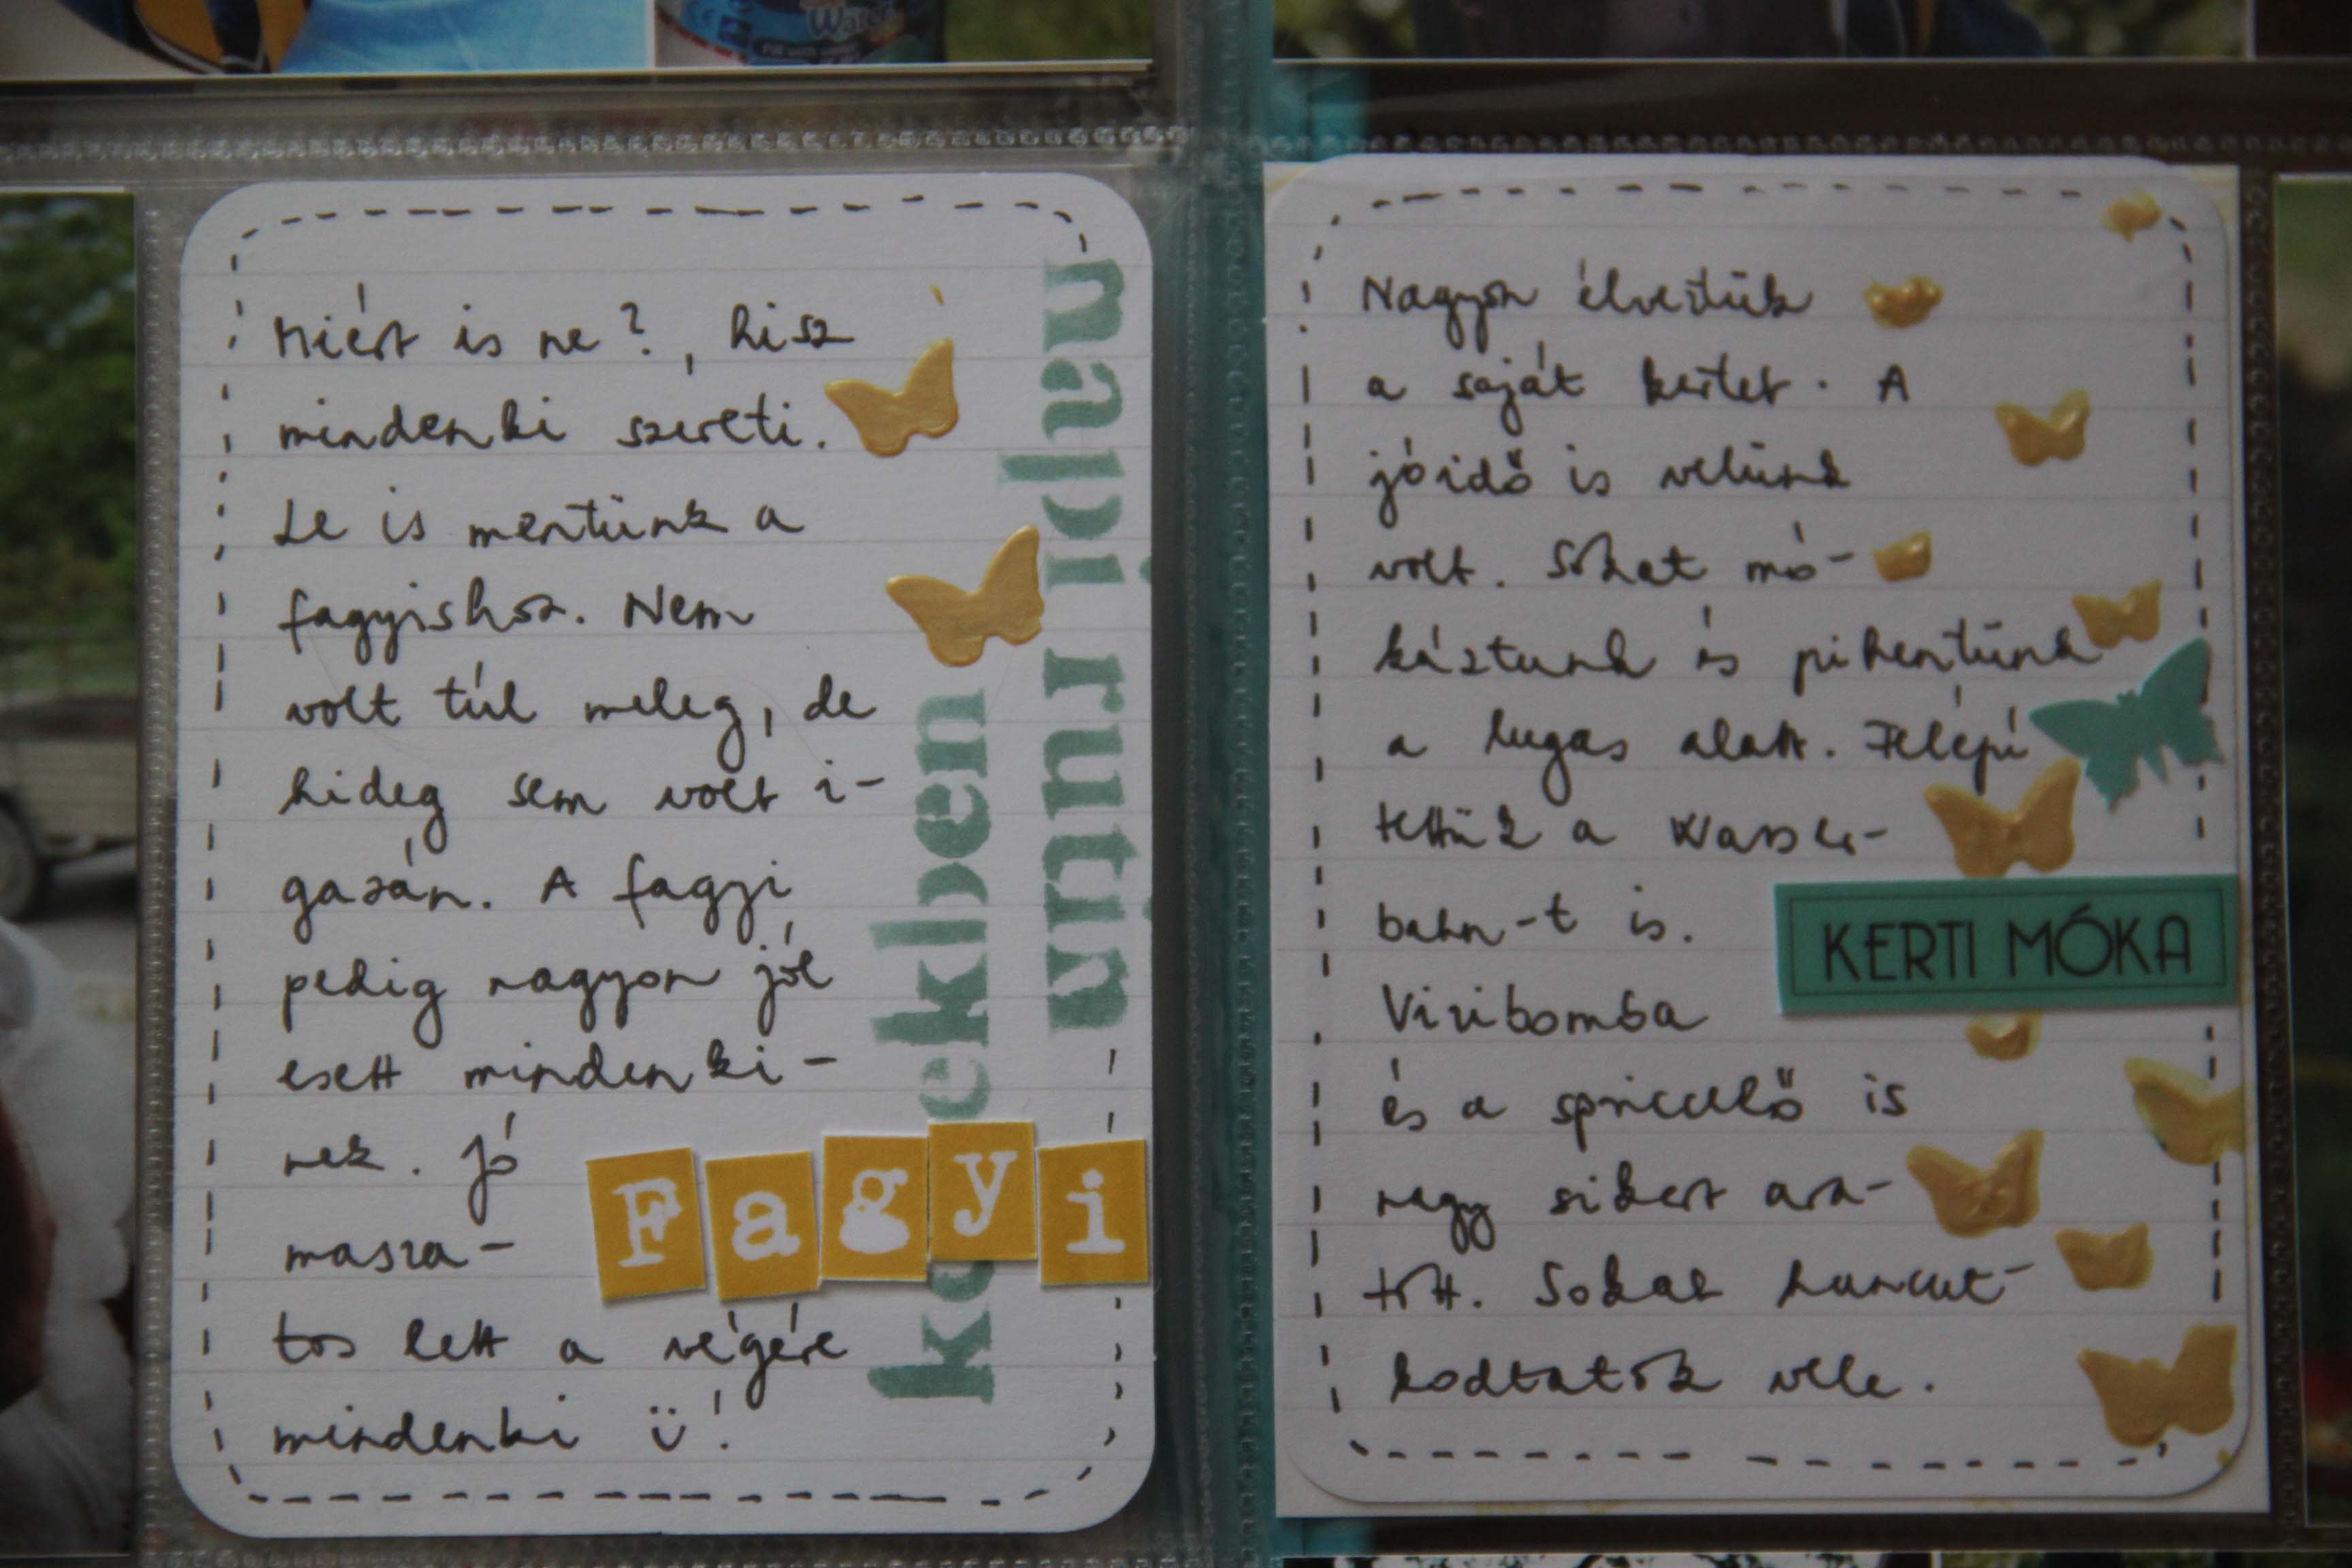 Water
Miért is ne?, hisz
mindenki szereti.
Le is mentünk a
fagyishoz. Nem
volt túl meleg, de
hideg sem volt i-
gazán. A fagyi
pedig nagyon jól
esett mindenki-
nek. Jó
masza-
tos lett a végére
mindenki ü!
Fagyi
napi rutin
kockben
Nagyon élveztük
a saját kertet. A
jóidő is velünk
volt. Sokat mó-
káztunk és pihentünk
a lugas alatt. Felépí
tettük a Wasser-
bahn-t is.
Vizibomba
és a spriccelő is
nagy sikert ara-
tott. Sokat huncut-
kodtatok vele.
KERTI MÓKA